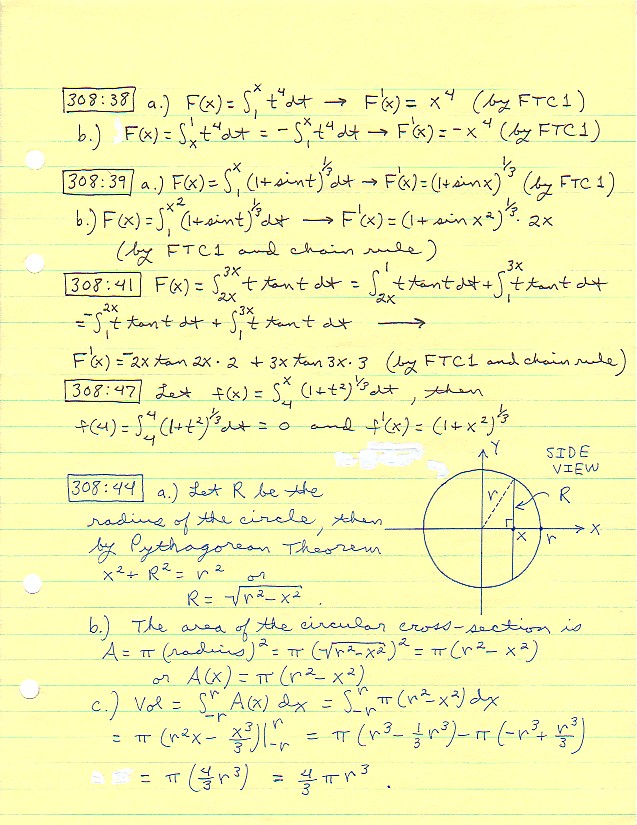 308:38 a.) F(x) = ∫₁ˣ t⁴ dt → F'(x) = x⁴ (by FTC1)
b.) F(x) = ∫ₓ¹ t⁴ dt = -∫₁ˣ t⁴ dt → F'(x) = -x⁴ (by FTC1)
308:39 a.) F(x) = ∫₁ˣ (1+sin t)^(1/3) dt → F'(x) = (1+sin x)^(1/3) (by FTC1)
b.) F(x) = ∫₁^(x²) (1+sin t)^(1/3) dt → F'(x) = (1+sin x²)^(1/3) · 2x
(by FTC1 and chain rule)
308:41 F(x) = ∫_(2x)^(3x) t tan t dt = ∫_(2x)^1 t tan t dt + ∫₁^(3x) t tan t dt
= -∫₁^(2x) t tan t dt + ∫₁^(3x) t tan t dt →
F'(x) = -2x tan 2x · 2 + 3x tan 3x · 3 (by FTC1 and chain rule)
308:47 Let f(x) = ∫₄ˣ (1+t²)^(1/3) dt, then
f(4) = ∫₄⁴ (1+t²)^(1/3) dt = 0 and f'(x) = (1+x²)^(1/3)
308:44 a.) Let R be the
radius of the circle, then
by Pythagorean Theorem
x² + R² = r² or
R = √(r² - x²) .
Y
SIDE
VIEW
r
R
x
r
X
b.) The area of the circular cross-section is
A = π (radius)² = π (√(r²-x²))² = π (r² - x²)
or A(x) = π (r² - x²)
c.) Vol = ∫_(-r)^r A(x) dx = ∫_(-r)^r π (r² - x²) dx
= π (r²x - x³/3) |_(-r)^r = π (r³ - 1/3 r³) - π (-r³ + r³/3)
= π (4/3 r³) = 4/3 π r³ .